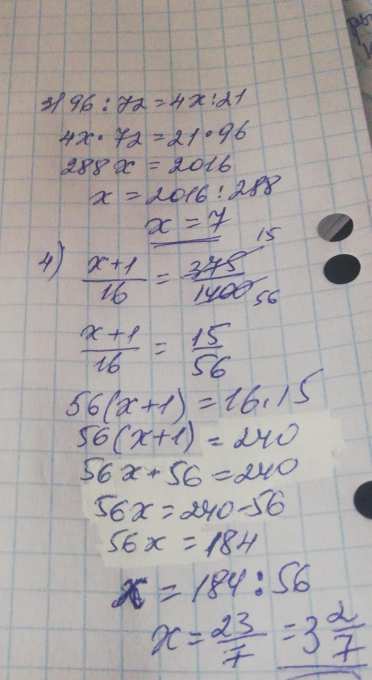 3) 96 : 72 = 4x : 21
4x · 72 = 21 · 96
288 x = 2016
x = 2016 : 288
x = 7
4) (x+1)/16 = 375/1400 15 56
(x+1)/16 = 15/56
56(x+1) = 16 · 15
56(x+1) = 240
56x + 56 = 240
56x = 240 - 56
56x = 184
x = 184 : 56
x = 23/7 = 3 2/7